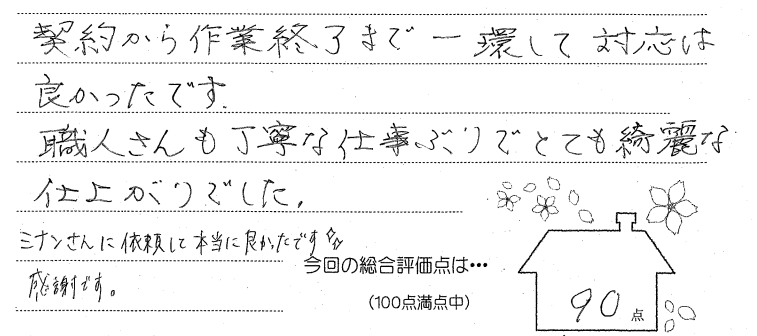 契約から作業終了まで一環して対応は
良かったです.
職人さんも丁寧な仕事ぶりでとても綺麗な
仕上がりでした.
ミナンさんに依頼して本当に良かったです
感謝です。
今回の総合評価点は…
(100点満点中)
90点